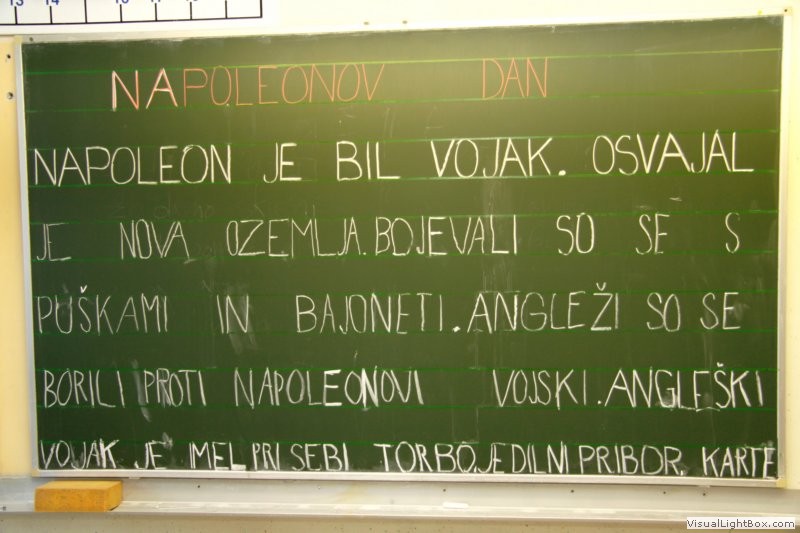 13 14 15 16 17
NAPOLEONOV DAN
NAPOLEON JE BIL VOJAK. OSVAJAL
JE NOVA OZEMLJA. BOJEVALI SO SE S
PUŠKAMI IN BAJONETI. ANGLEŽI SO SE
BORILI PROTI NAPOLEONOVI VOJSKI. ANGLEŠKI
VOJAK JE IMEL PRI SEBI TORBO, JEDILNI PRIBOR, KARTE
VisualLightBox.com